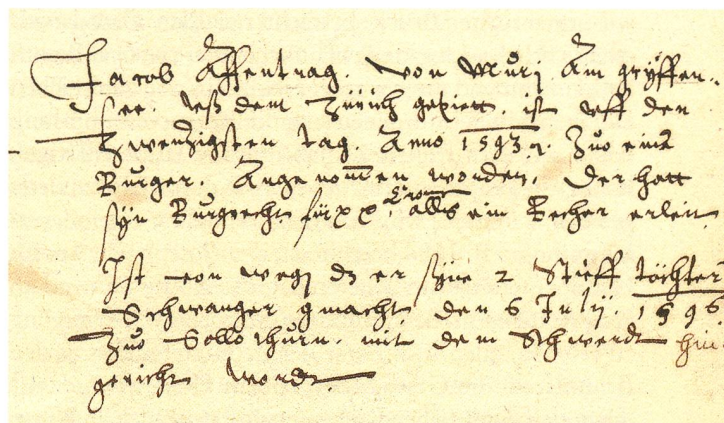 Jacob Affentrag. von Mury Am gryffen..
see. uß dem Zürich gepiett. ist uff den
Zwentzigsten tag. Anno 1593. Zuo eine
Burger. Ange nom̄en worden. Der hatt
syn Burgrecht für xx Cronen alls ein Becher erleit
Ist von wegen dz er syne 2 Stieff töchter
Schwanger gmacht den 6 Julij. 1596
Zuo Sollothurn. mit dem Schwerdt hin
gericht wordt